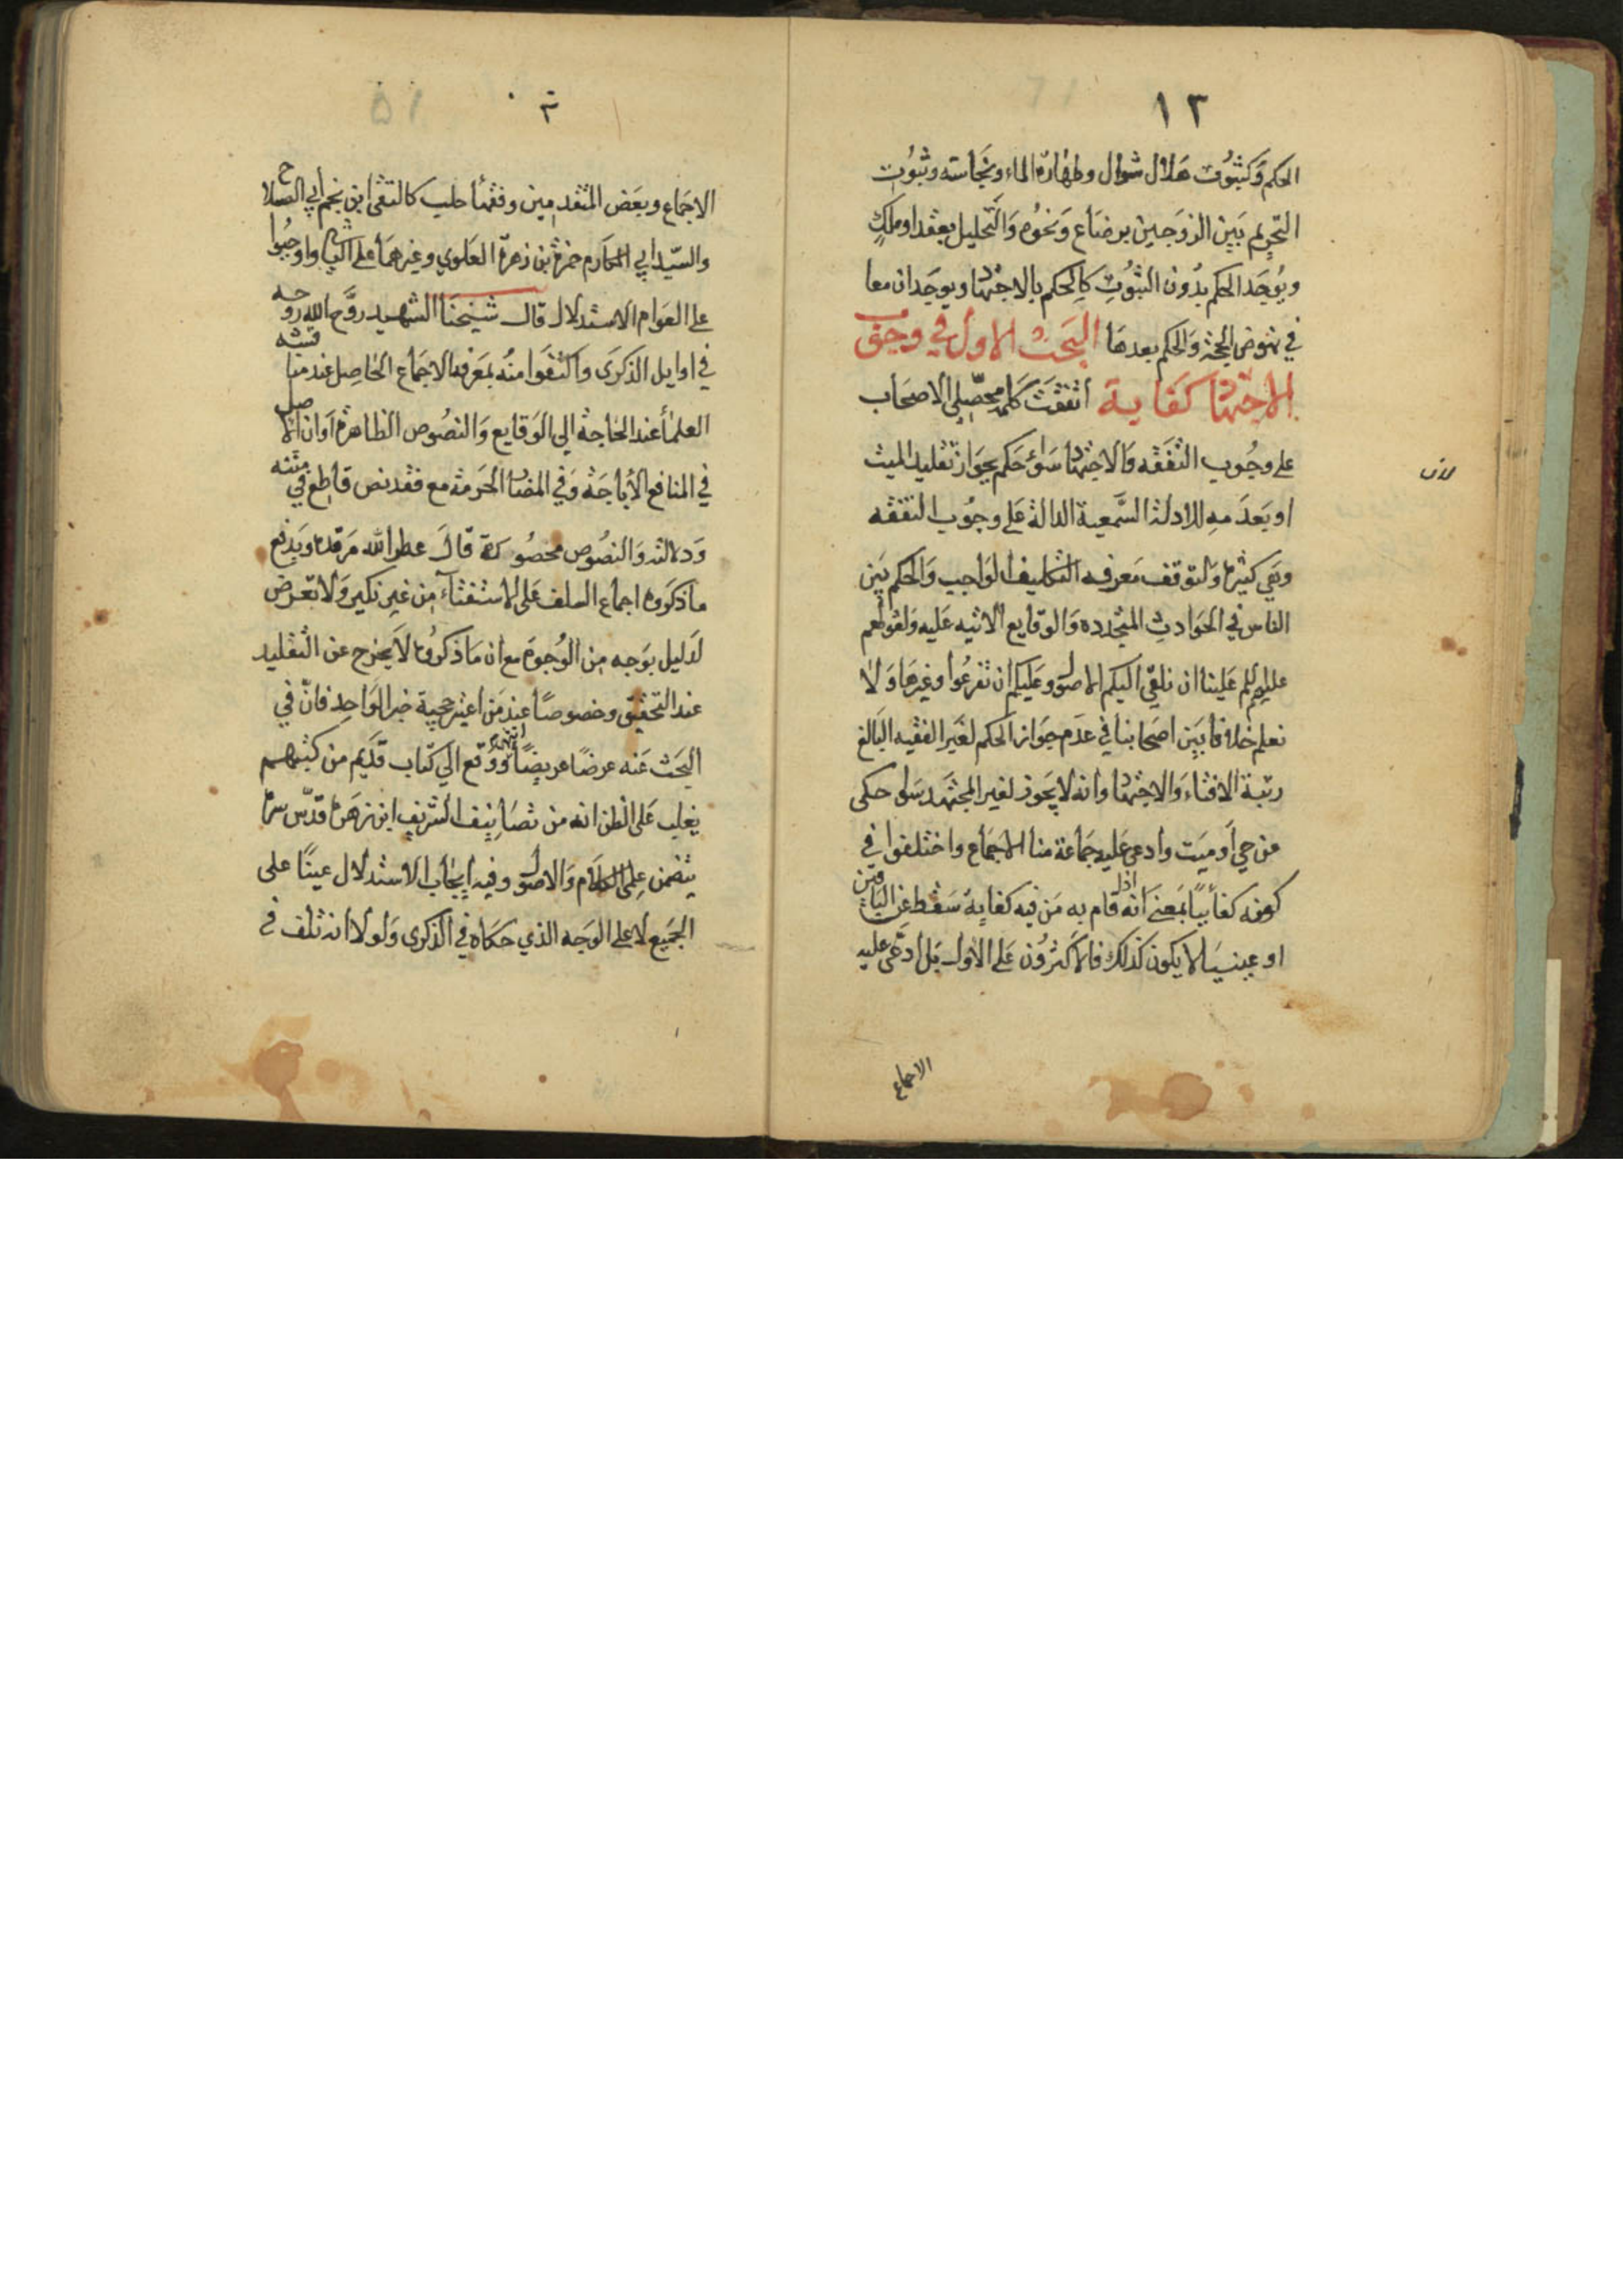 ١٣
الحكم وكثبوت هلال شوال وطهارة الماء ونجاسته وثبوت
التحريم بين الزوجين برضاع ونحوه والتحليل بعقد او ملك
ويوجد الحكم بدون الثبوت كالحكم بالاجتهاد ويوجدان معا
في نهوض الحجة والحكم بعدها البحث الاول في وجوب
الاجتهاد كفاية اتفقت كلمة محصلي الاصحاب
على وجوب التفقه والاجتهاد سواء حكم بجواز تقليد الميت
او بعدمه للادلة السمعية الدالة على وجوب التفقه
وهي كثيرة ولتوقف معرفة التكليف الواجب والحكم بين
الناس في الحوادث المتجددة والوقايع الاتيه عليه ولقولهم
عليهم السلم علينا ان نلقي اليكم الاصول وعليكم ان تفرعوا وغيرها ولا
نعلم خلافا بين اصحابنا في عدم جواز الحكم لغير الفقيه البالغ
رتبة الافتاء والاجتهاد وانه لا يجوز لغير المجتهد سواء حكى
عن حي أو ميت وادعى عليه جماعة منا الاجماع واختلفوا في
كونه كفائيا بمعنى انه اذا قام به من فيه كفاية سقط عن الباقين
او عينيا لا يكون كذلك فالاكثرون على الاول بل ادعى عليه
الاجماع
الاجماع وبعض المتقدمين وفقهاء حلب كالتقى ابن نجم أبي الصلاح
والسيد ابي المكارم حمزة بن زهرة العلوي وغيرهما على الثاني واوجبوا
على العوام الاستدلال قال شيخنا الشهيد روح الله روحه
في اوايل الذكرى واكتفوا منه بمعرفة الاجماع الحاصل عند مناقشة
العلماء عند الحاجة الى الوقايع والنصوص الظاهرة او ان الاصل
في المنافع الاباحة وفي المضار الحرمة مع فقد نص قاطع في متنه
ودلالته والنصوص محصورة قال عطر الله مرقده ويدفع
ما ذكروه اجماع السلف على الاستفتاء من غير نكير ولا تعرض
لدليل بوجه من الوجوه مع ان ما ذكروه لا يخرج عن التقليد
عند التحقيق وخصوصا عند من اعتبر حجية خبر الواحد فان في
البحث عنه عرضا عريضا انتهى ووقع الي كتاب قديم من كتبهم
يغلب على الظن انه من تصانيف الشريف ابن زهرة قدس سره
يتضمن علمي الكلام والاصول وفيه ايجاب الاستدلال عينا على
الجميع لا على الوجه الذي حكاه في الذكرى ولولا انه تلف في